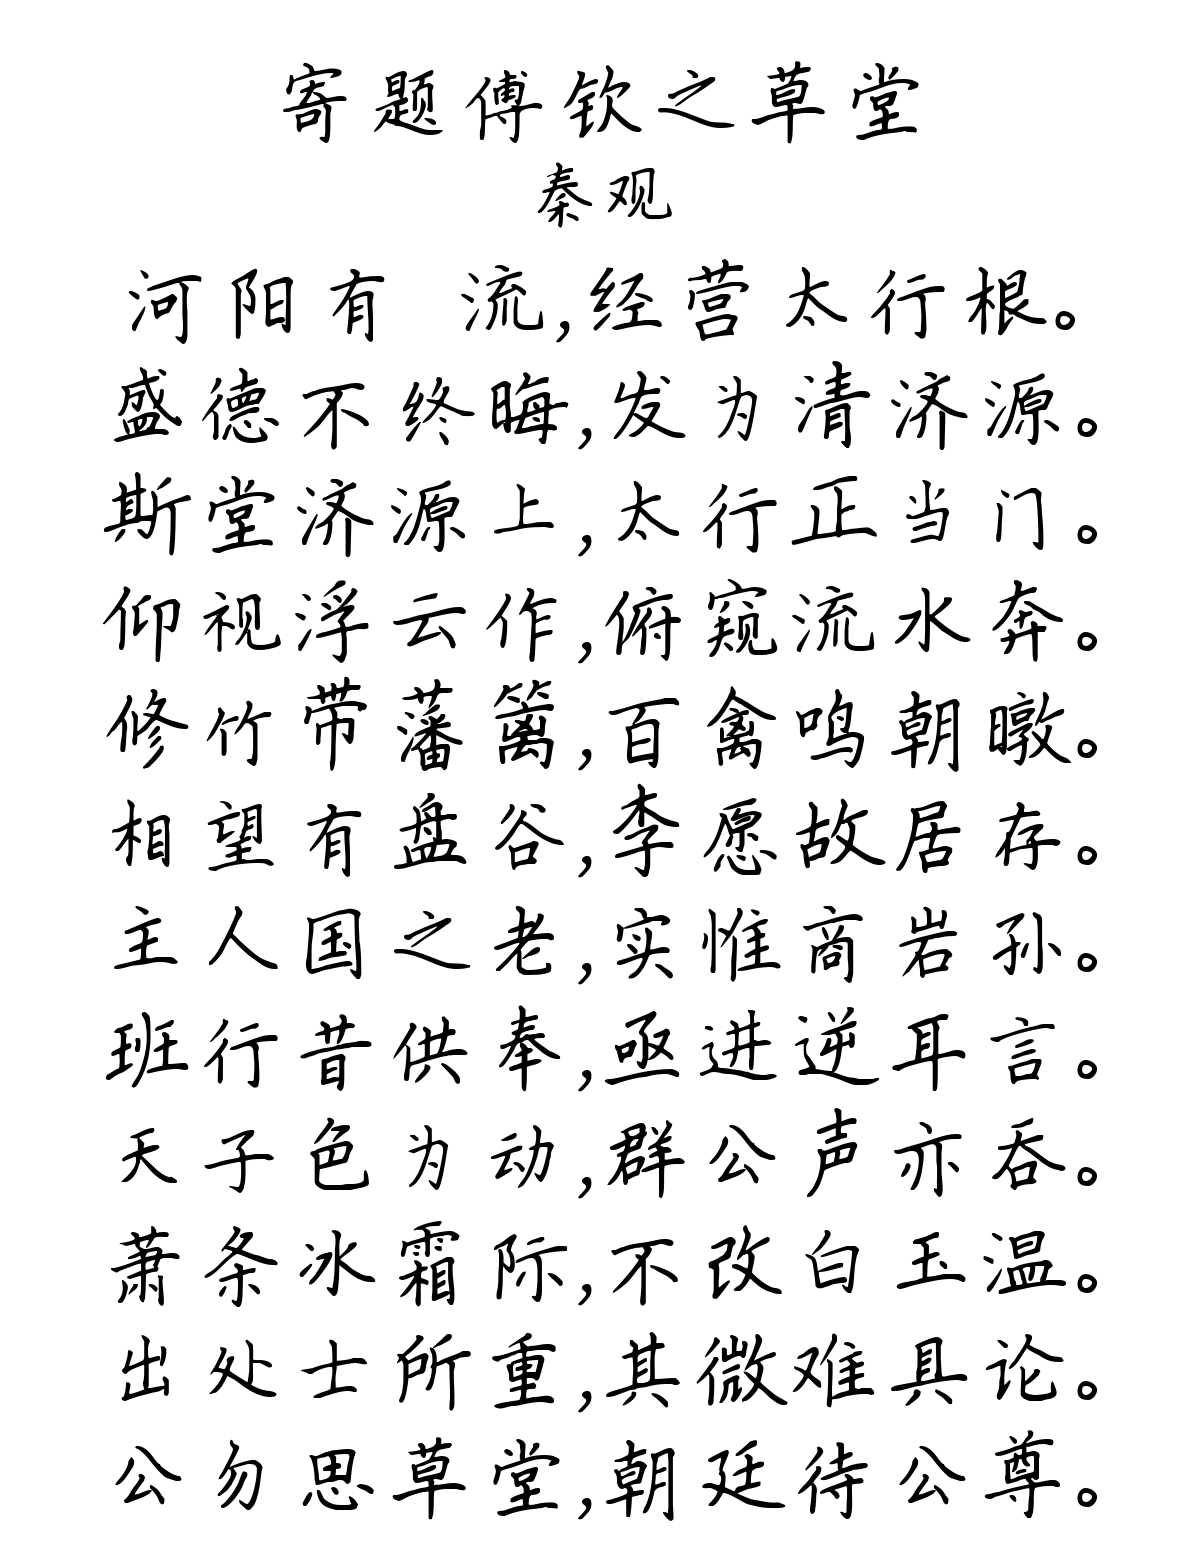 寄题傅钦之草堂
秦观
河阳有 流,经营太行根。
盛德不终晦,发为清济源。
斯堂济源上,太行正当门。
仰视浮云作,俯窥流水奔。
修竹带藩篱,百禽鸣朝暾。
相望有盘谷,李愿故居存。
主人国之老,实惟商岩孙。
班行昔供奉,亟进逆耳言。
天子色为动,群公声亦吞。
萧条冰霜际,不改白玉温。
出处士所重,其微难具论。
公勿思草堂,朝廷待公尊。